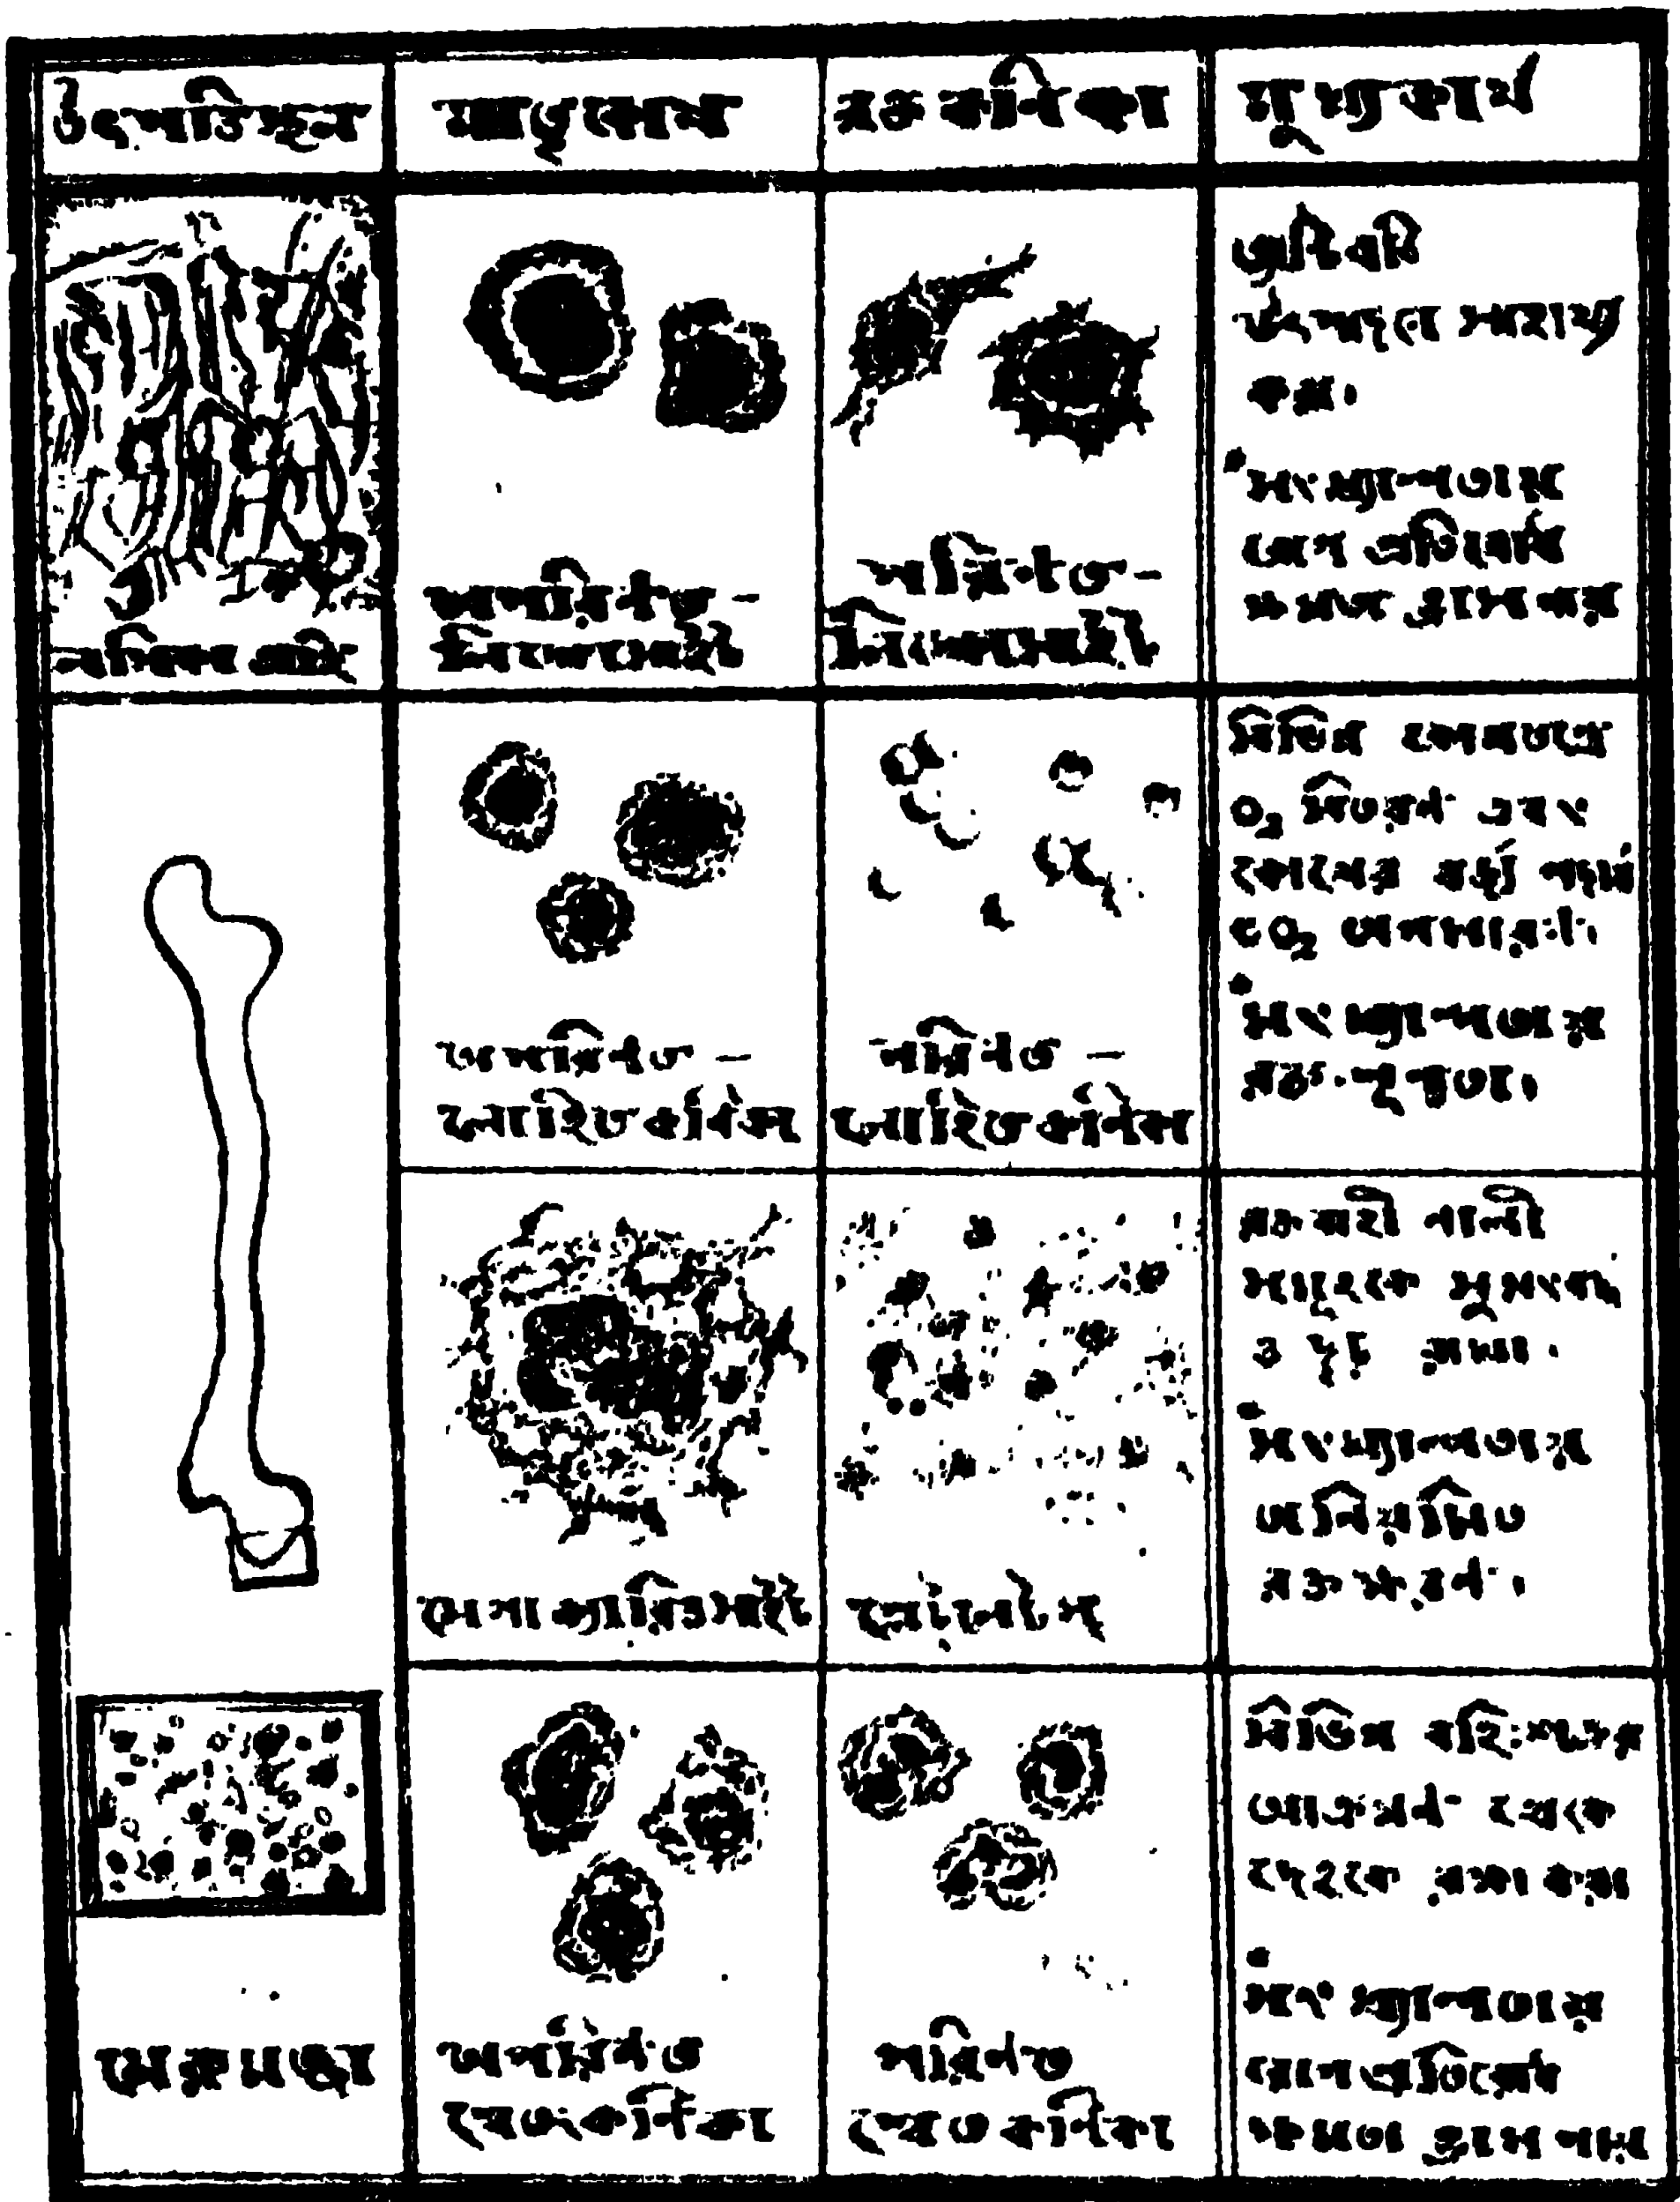 উৎপত্তিস্থল
মাতৃকোষ
রক্ত কণিকা
মুখ্যকার্য
লসিকা গ্রন্থি
অপরিণত -
লিম্ফোসাইট
পরিণত -
লিম্ফোসাইট
অ্যান্টিবডি
উৎপাদনে সাহায্য
করা।
সংখ্যাল্পতায়
রোগ প্রতিরোধ
ক্ষমতা হ্রাস পায়
অপরিণত -
লোহিত কণিকা
পরিণত -
লোহিত কণিকা
বিভিন্ন কোষতন্ত্রে
O₂ বিতরণ এবং
কোষের বর্জ্য পদার্থ
CO₂ অপসারণ।
সংখ্যাল্পতায়
রক্ত শূণ্যতা।
মেগাক্যারিওসাইট
প্লেটলেটস্
রক্তবাহী নালী
সমূহকে সুসংবদ্ধ
ও দৃঢ় রাখা।
সংখ্যাল্পতায়
অনিয়মিত
রক্তক্ষরণ।
মেরুমজ্জা
অপরিণত
শ্বেতকণিকা
পরিণত
শ্বেতকণিকা
বিভিন্ন বহিঃশত্রুর
আক্রমণ থেকে
দেহকে রক্ষা করা
সংখ্যাল্পতায়
রোগপ্রতিরোধ
ক্ষমতা হ্রাস পায়